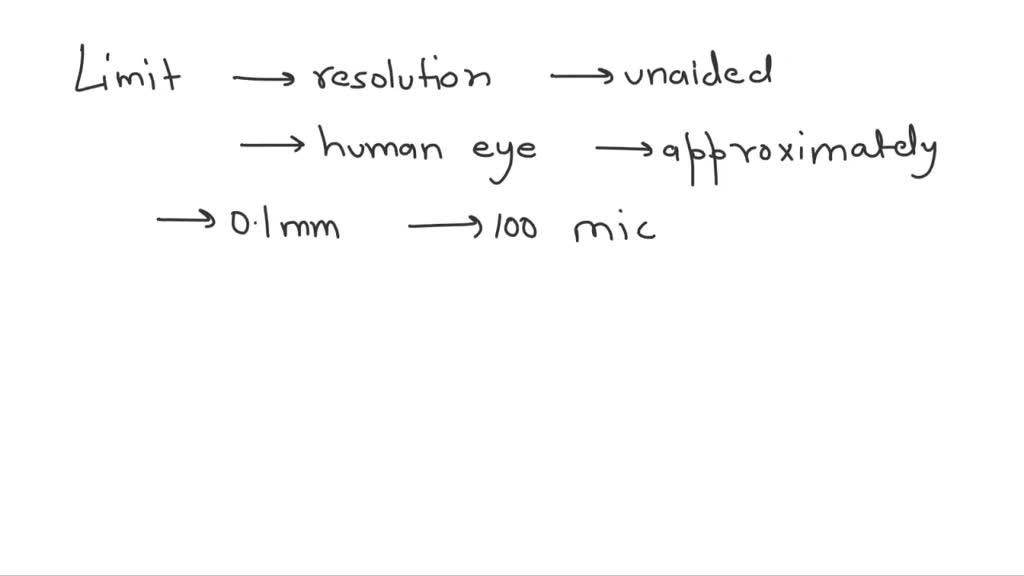 Limit → resolution → unaided
→ human eye → approximately
→ 0.1mm → 100 mic